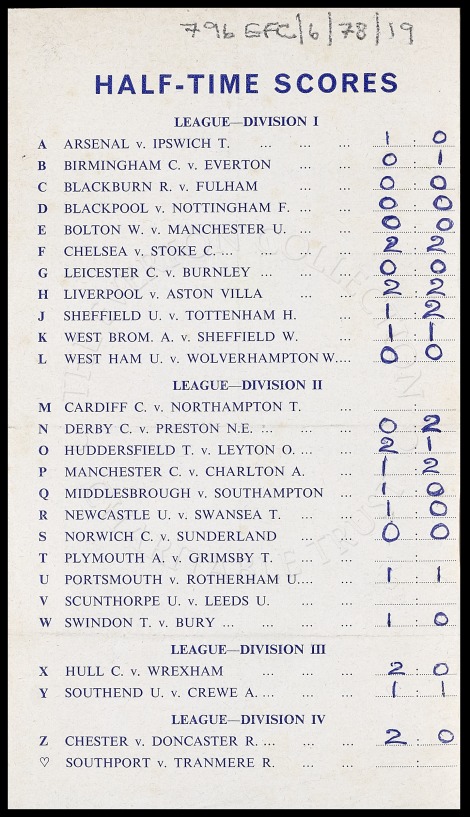 796 EFC/6/78/19
HALF-TIME SCORES
LEAGUE—DIVISION I
A ARSENAL v. IPSWICH T. ... ... ... 1 : 0
B BIRMINGHAM C. v. EVERTON ... ... 0 : 1
C BLACKBURN R. v. FULHAM ... ... 0 : 0
D BLACKPOOL v. NOTTINGHAM F. ... ... 0 : 0
E BOLTON W. v. MANCHESTER U. ... ... 0 : 0
F CHELSEA v. STOKE C. ... ... ... ... 2 : 2
G LEICESTER C. v. BURNLEY ... ... ... 0 : 0
H LIVERPOOL v. ASTON VILLA ... ... 2 : 2
J SHEFFIELD U. v. TOTTENHAM H. ... 1 : 2
K WEST BROM. A. v. SHEFFIELD W. ... 1 : 1
L WEST HAM U. v. WOLVERHAMPTON W.... 0 : 0
LEAGUE—DIVISION II
M CARDIFF C. v. NORTHAMPTON T. ... :
N DERBY C. v. PRESTON N.E. ... ... ... 0 : 2
O HUDDERSFIELD T. v. LEYTON O. ... ... 2 : 1
P MANCHESTER C. v. CHARLTON A. ... 1 : 2
Q MIDDLESBROUGH v. SOUTHAMPTON ... 1 : 0
R NEWCASTLE U. v. SWANSEA T. ... ... 1 : 0
S NORWICH C. v. SUNDERLAND ... ... 0 : 0
T PLYMOUTH A. v. GRIMSBY T. ... ... :
U PORTSMOUTH v. ROTHERHAM U.... ... 1 : 1
V SCUNTHORPE U. v. LEEDS U. ... ... :
W SWINDON T. v. BURY ... ... ... ... 1 : 0
LEAGUE—DIVISION III
X HULL C. v. WREXHAM ... ... ... 2 : 0
Y SOUTHEND U. v. CREWE A. ... ... ... 1 : 1
LEAGUE—DIVISION IV
Z CHESTER v. DONCASTER R. ... ... ... 2 : 0
♡ SOUTHPORT v. TRANMERE R. ... ... :